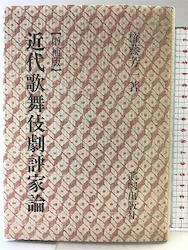 権藤芳一 著
演劇出版社
【増補版】
近代歌舞伎劇評家論